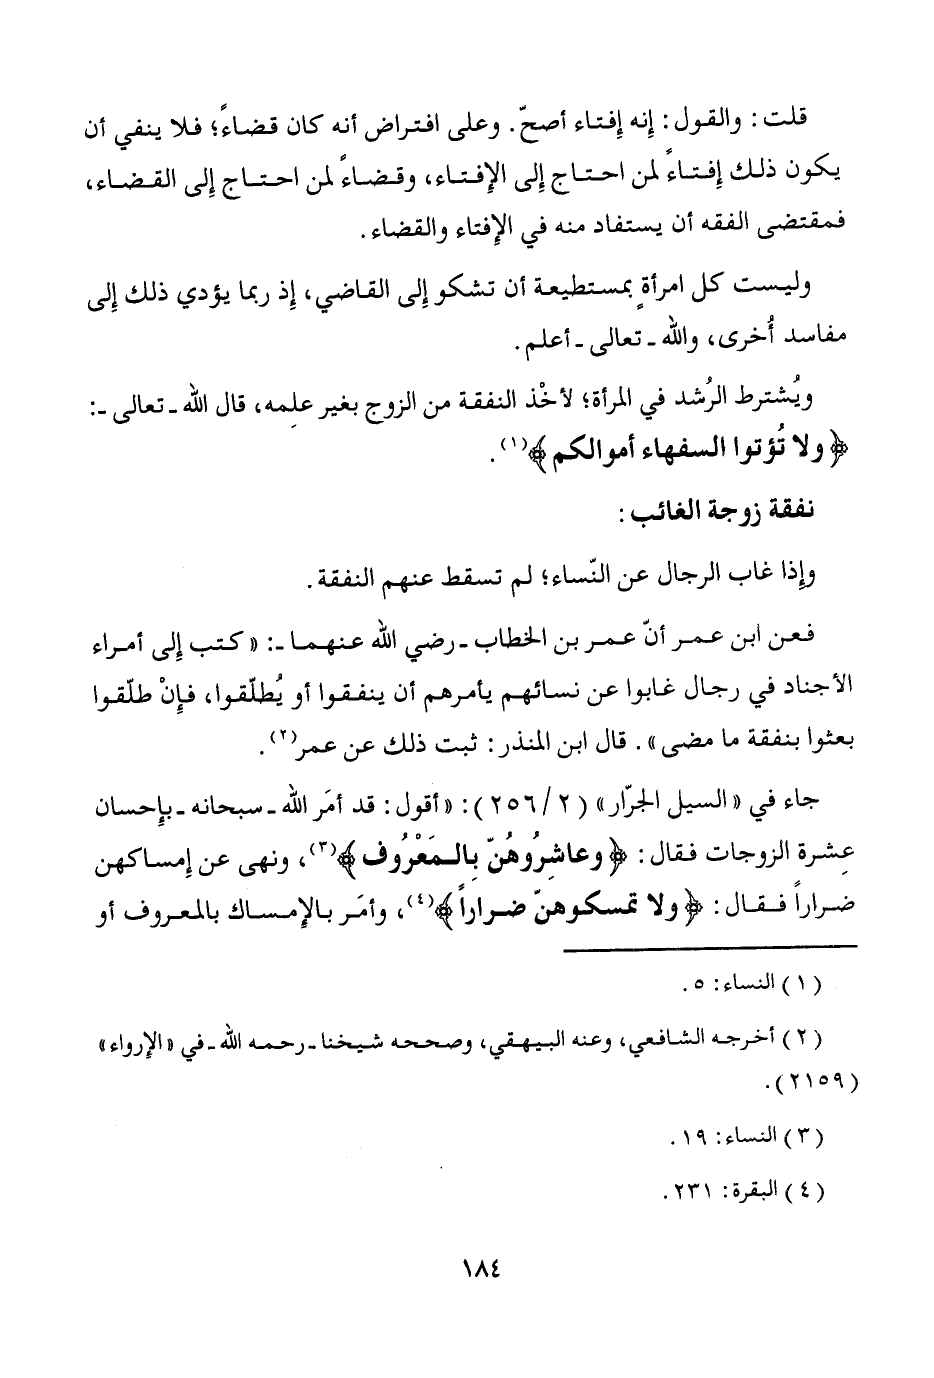 قلت : والقول : إنه إفتاء أصحّ . وعلى افتراض أنه كان قضاءً؛ فلا ينفي أن
يكون ذلك إفتاءً لمن احتاج إلى الإفتاء، وقضاءً لمن احتاج إلى القضاء،
فمقتضى الفقه أن يستفاد منه في الإفتاء والقضاء .
وليست كل امرأةٍ بمستطيعة أن تشكو إلى القاضي، إذ ربما يؤدي ذلك إلى
مفاسد أُخرى، والله ـ تعالى ـ أعلم .
ويُشترط الرُشد في المرأة؛ لأخْذ النفقة من الزوج بغير علمِه، قال الله ـ تعالى ـ :
﴿ ولا تُؤتوا السفهاء أموالكم ﴾(١) .
نفقة زوجة الغائب :
وإذا غاب الرجال عن النّساء؛ لم تسقط عنهم النفقة .
فعن ابن عمر أنّ عمر بن الخطاب ـ رضي الله عنهما ـ : « كتب إلى أمراء
الأجناد في رجال غابوا عن نسائهم يأمرهم أن ينفقوا أو يُطلّقوا، فإنْ طلّقوا
بعثوا بنفقة ما مضى » . قال ابن المنذر : ثبت ذلك عن عمر(٢) .
جاء في « السيل الجرّار » ( ٢ / ٢٥٦ ) : « أقول : قد أمَر الله ـ سبحانه ـ بإحسان
عِشرة الزوجات فقال : ﴿ وعاشِرُوهُنّ بِالمَعْرُوف ﴾(٣)، ونهى عن إمساكهن
ضراراً فقال : ﴿ ولا تمسكوهنّ ضراراً ﴾(٤)، وأمَر بالإمساك بالمعروف أو
( ١ ) النساء : ٥ .
( ٢ ) أخرجه الشافعي، وعنه البيهقي، وصححه شيخنا ـ رحمه الله ـ في « الإرواء »
( ٢١٥٩ ) .
( ٣ ) النساء : ١٩ .
( ٤ ) البقرة : ٢٣١ .
١٨٤